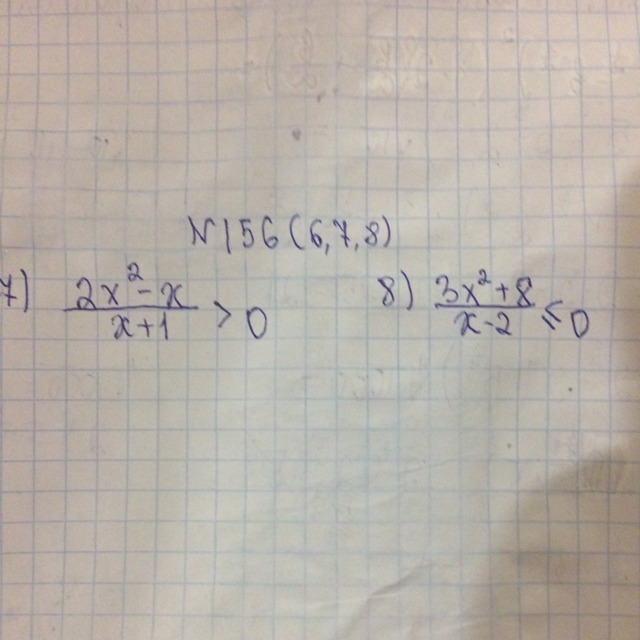 N156(6,7,8)
7) (2x²-x)/(x+1) > 0
8) (3x²+8)/(x-2) ≤ 0